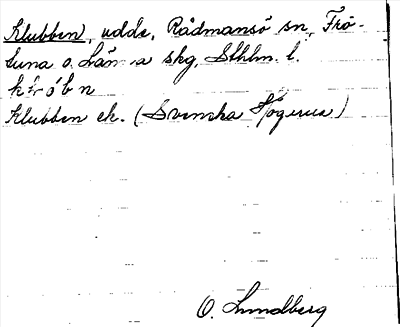 Klubben, udde, Rådmansö sn, Frö-
tuna o. Länna skg, Sthlm. l.
Klubben ek. (Svenska Högarna)
O. Lundberg